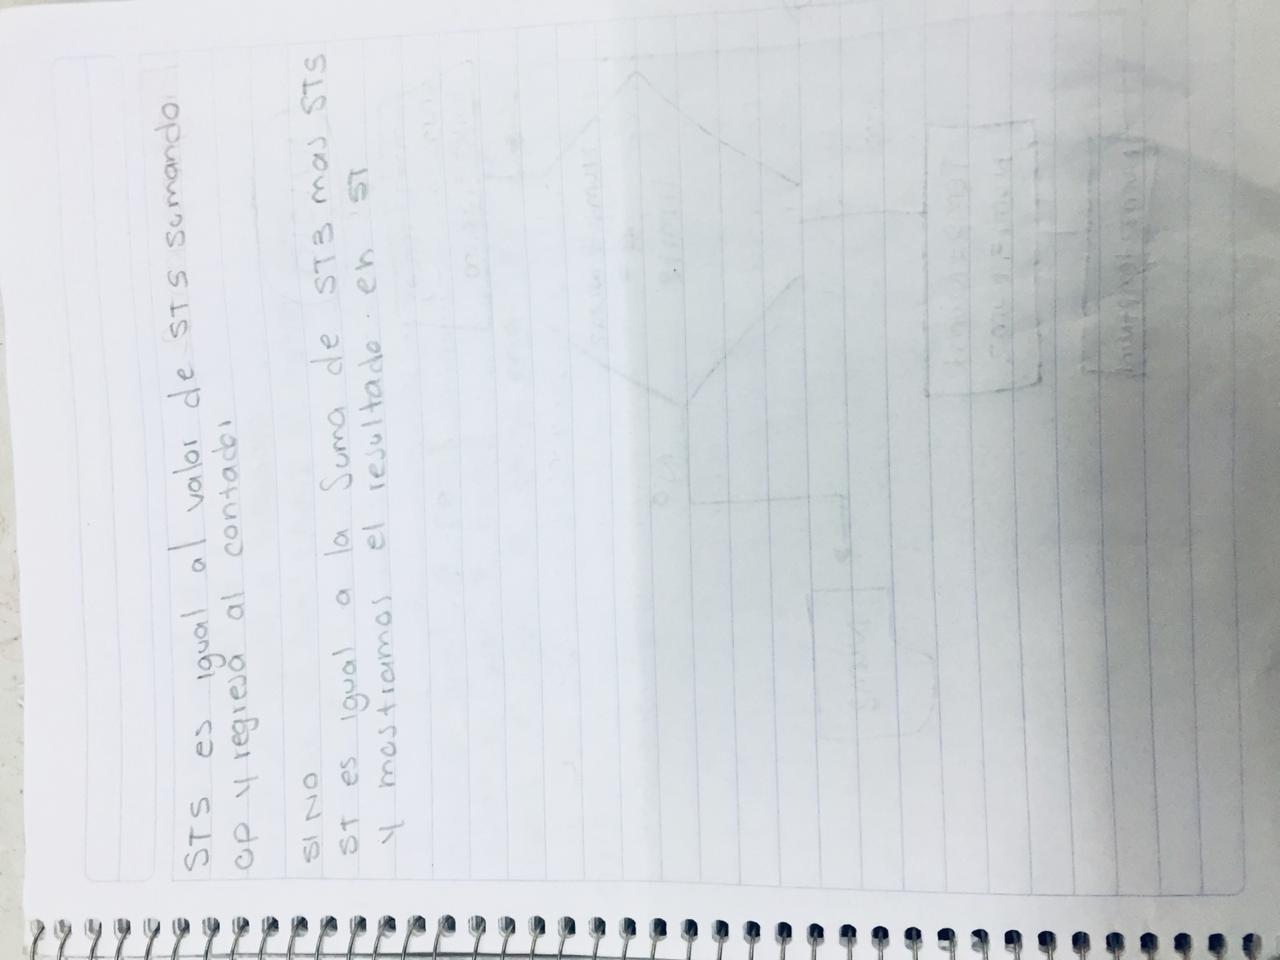 STS es igual al valor de STS sumando
OP y regresa al contador
SINO
ST es igual a la suma de ST3 mas STS
y mostramos el resultado en ST